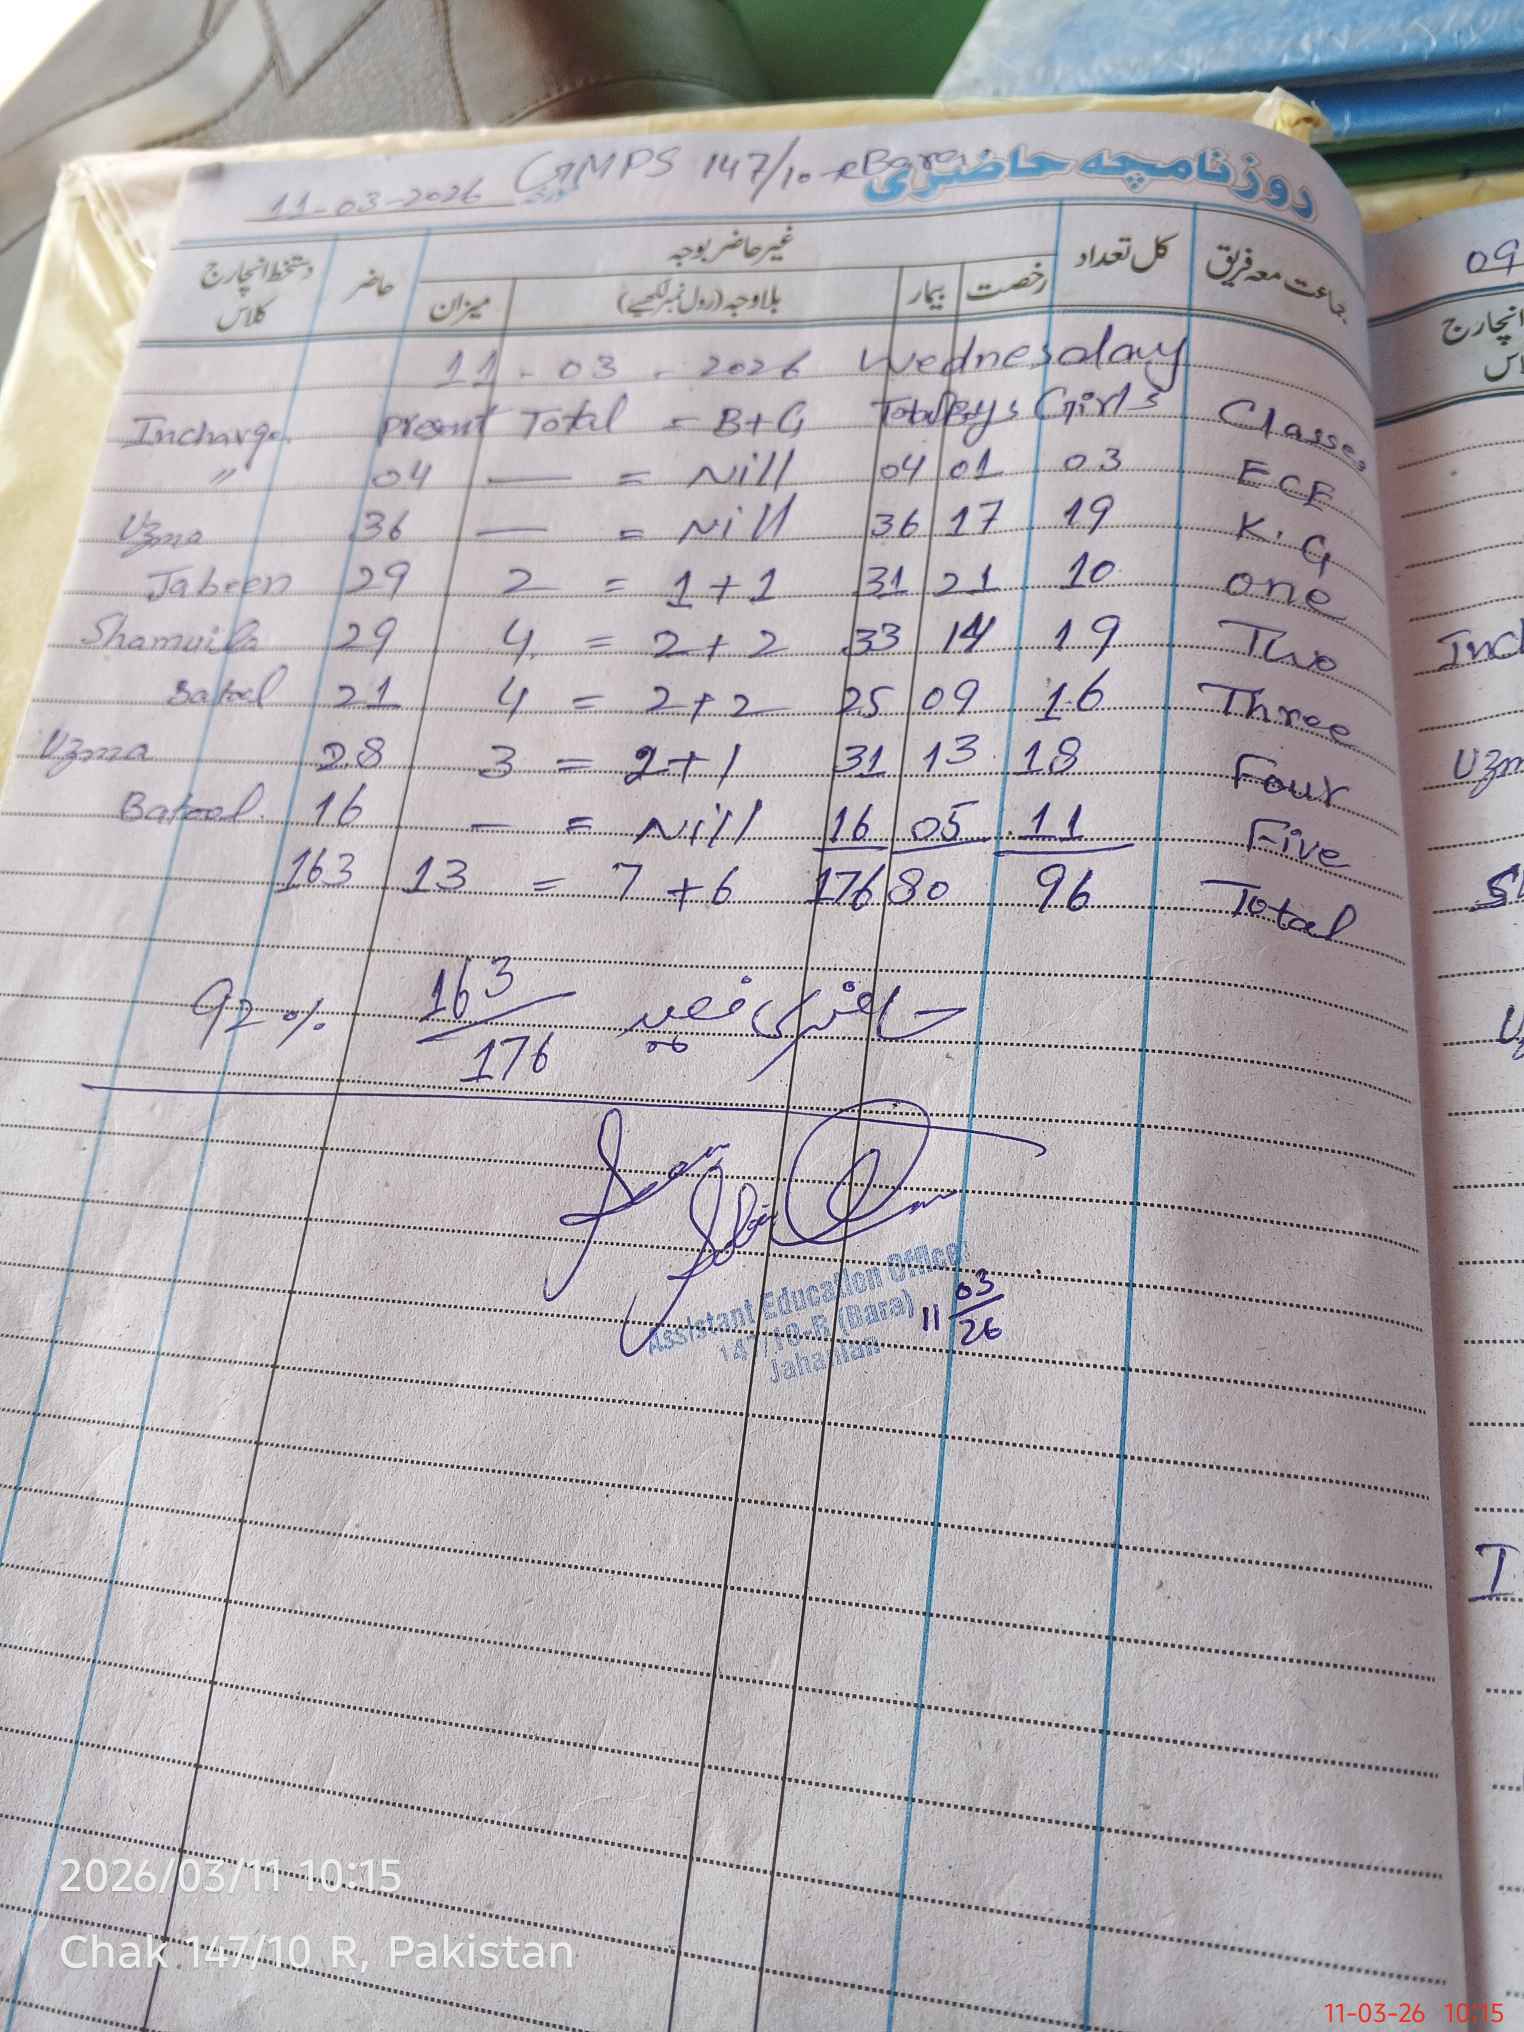 11-03-2026 GMPS 147/10-R Bara روزنامچہ حاضری
جماعت معہ فریق کل تعداد غیر حاضر بوجہ حاضر دستخط انچارج کلاس
رخصت بیمار بلاوجہ (رول نمبر لکھیے) میزان
11-03-2026 Wednesday
Incharge Present Total = B+G Total Boys Girls Classes
" 04 — = Nill 04 01 03 ECE
Uzma 36 — = Nill 36 17 19 K.G
Jabeen 29 2 = 1+1 31 21 10 One
Shamaila 29 4 = 2+2 33 14 19 Two
Batool 21 4 = 2+2 25 09 16 Three
Uzma 28 3 = 2+1 31 13 18 Four
Batool. 16 — = Nill 16 05 11 Five
163 13 = 7+6 176 80 96 Total
92% 163/176 حاضری فیصد
Assistant Education Officer
147/10-R (Bara)
Jahanian
11 03/26
09
انچارج
اس
Uzm
2026/03/11 10:15
Chak 147/10 R, Pakistan
11-03-26 10:15